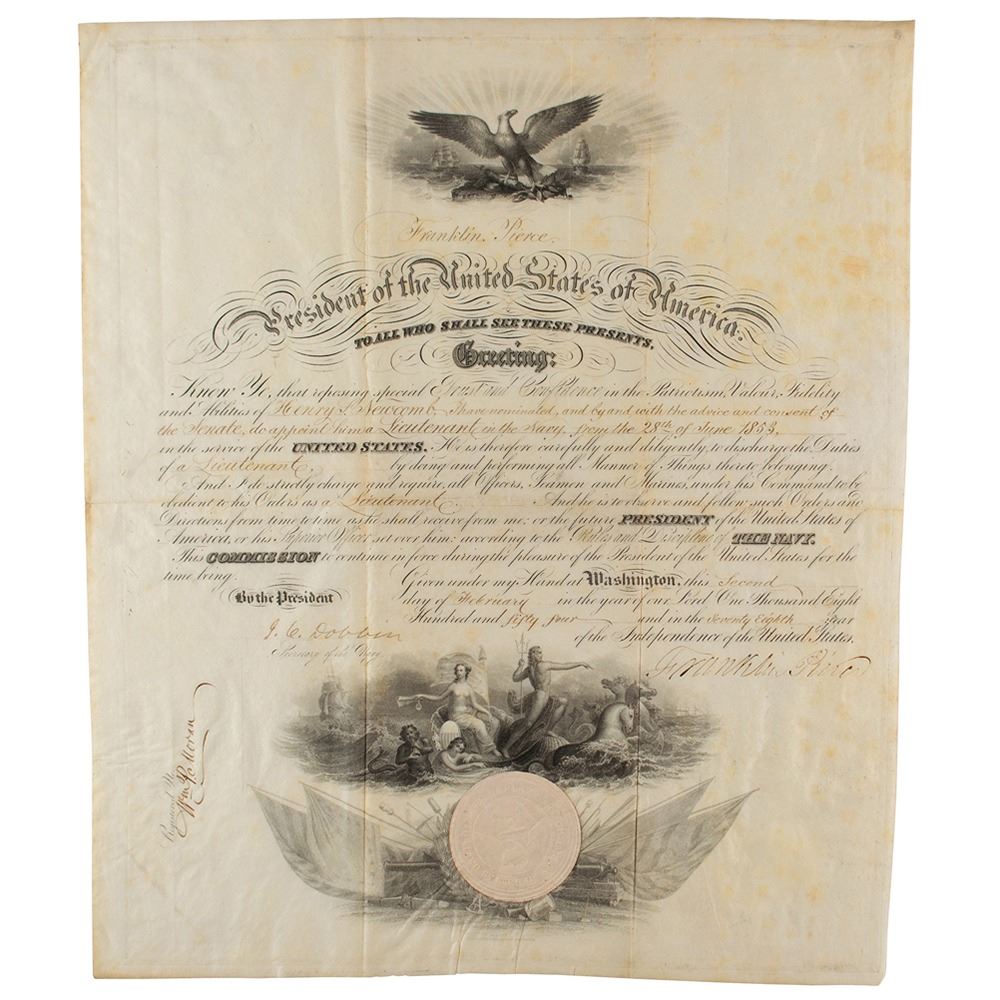 Franklin Pierce.
President of the United States of America.
TO ALL WHO SHALL SEE THESE PRESENTS,
Greeting:
Know Ye, that reposing special Trust and Confidence in the Patriotism, Valour, Fidelity
and Abilities of Henry S. Newcomb, I have nominated, and by and with the advice and consent of
the Senate, do appoint him a Lieutenant in the Navy, from the 28th of June 1853,
in the service of the UNITED STATES. He is therefore carefully and diligently, to discharge the Duties
of a Lieutenant, by doing and performing all Manner of Things thereto belonging.
And I do strictly charge and require, all Officers, Seamen and Marines, under his Command to be
obedient to his Orders as a Lieutenant. And he is to observe and follow such Orders and
Directions from time to time as he shall receive from me: or the future PRESIDENT of the United States of
America, or his Superior Officer set over him: according to the Rules and Discipline of THE NAVY.
This COMMISSION to continue in force during the pleasure of the President of the United States for the
time being.
Given under my Hand at Washington, this Second
By the President
day of February in the year of our Lord One Thousand Eight
Hundred and fifty four and in the Seventy Eighth year
of the Independence of the United States.
J. C. Dobbin
Secretary of the Navy
Franklin Pierce
Registered
Wm P. Moran